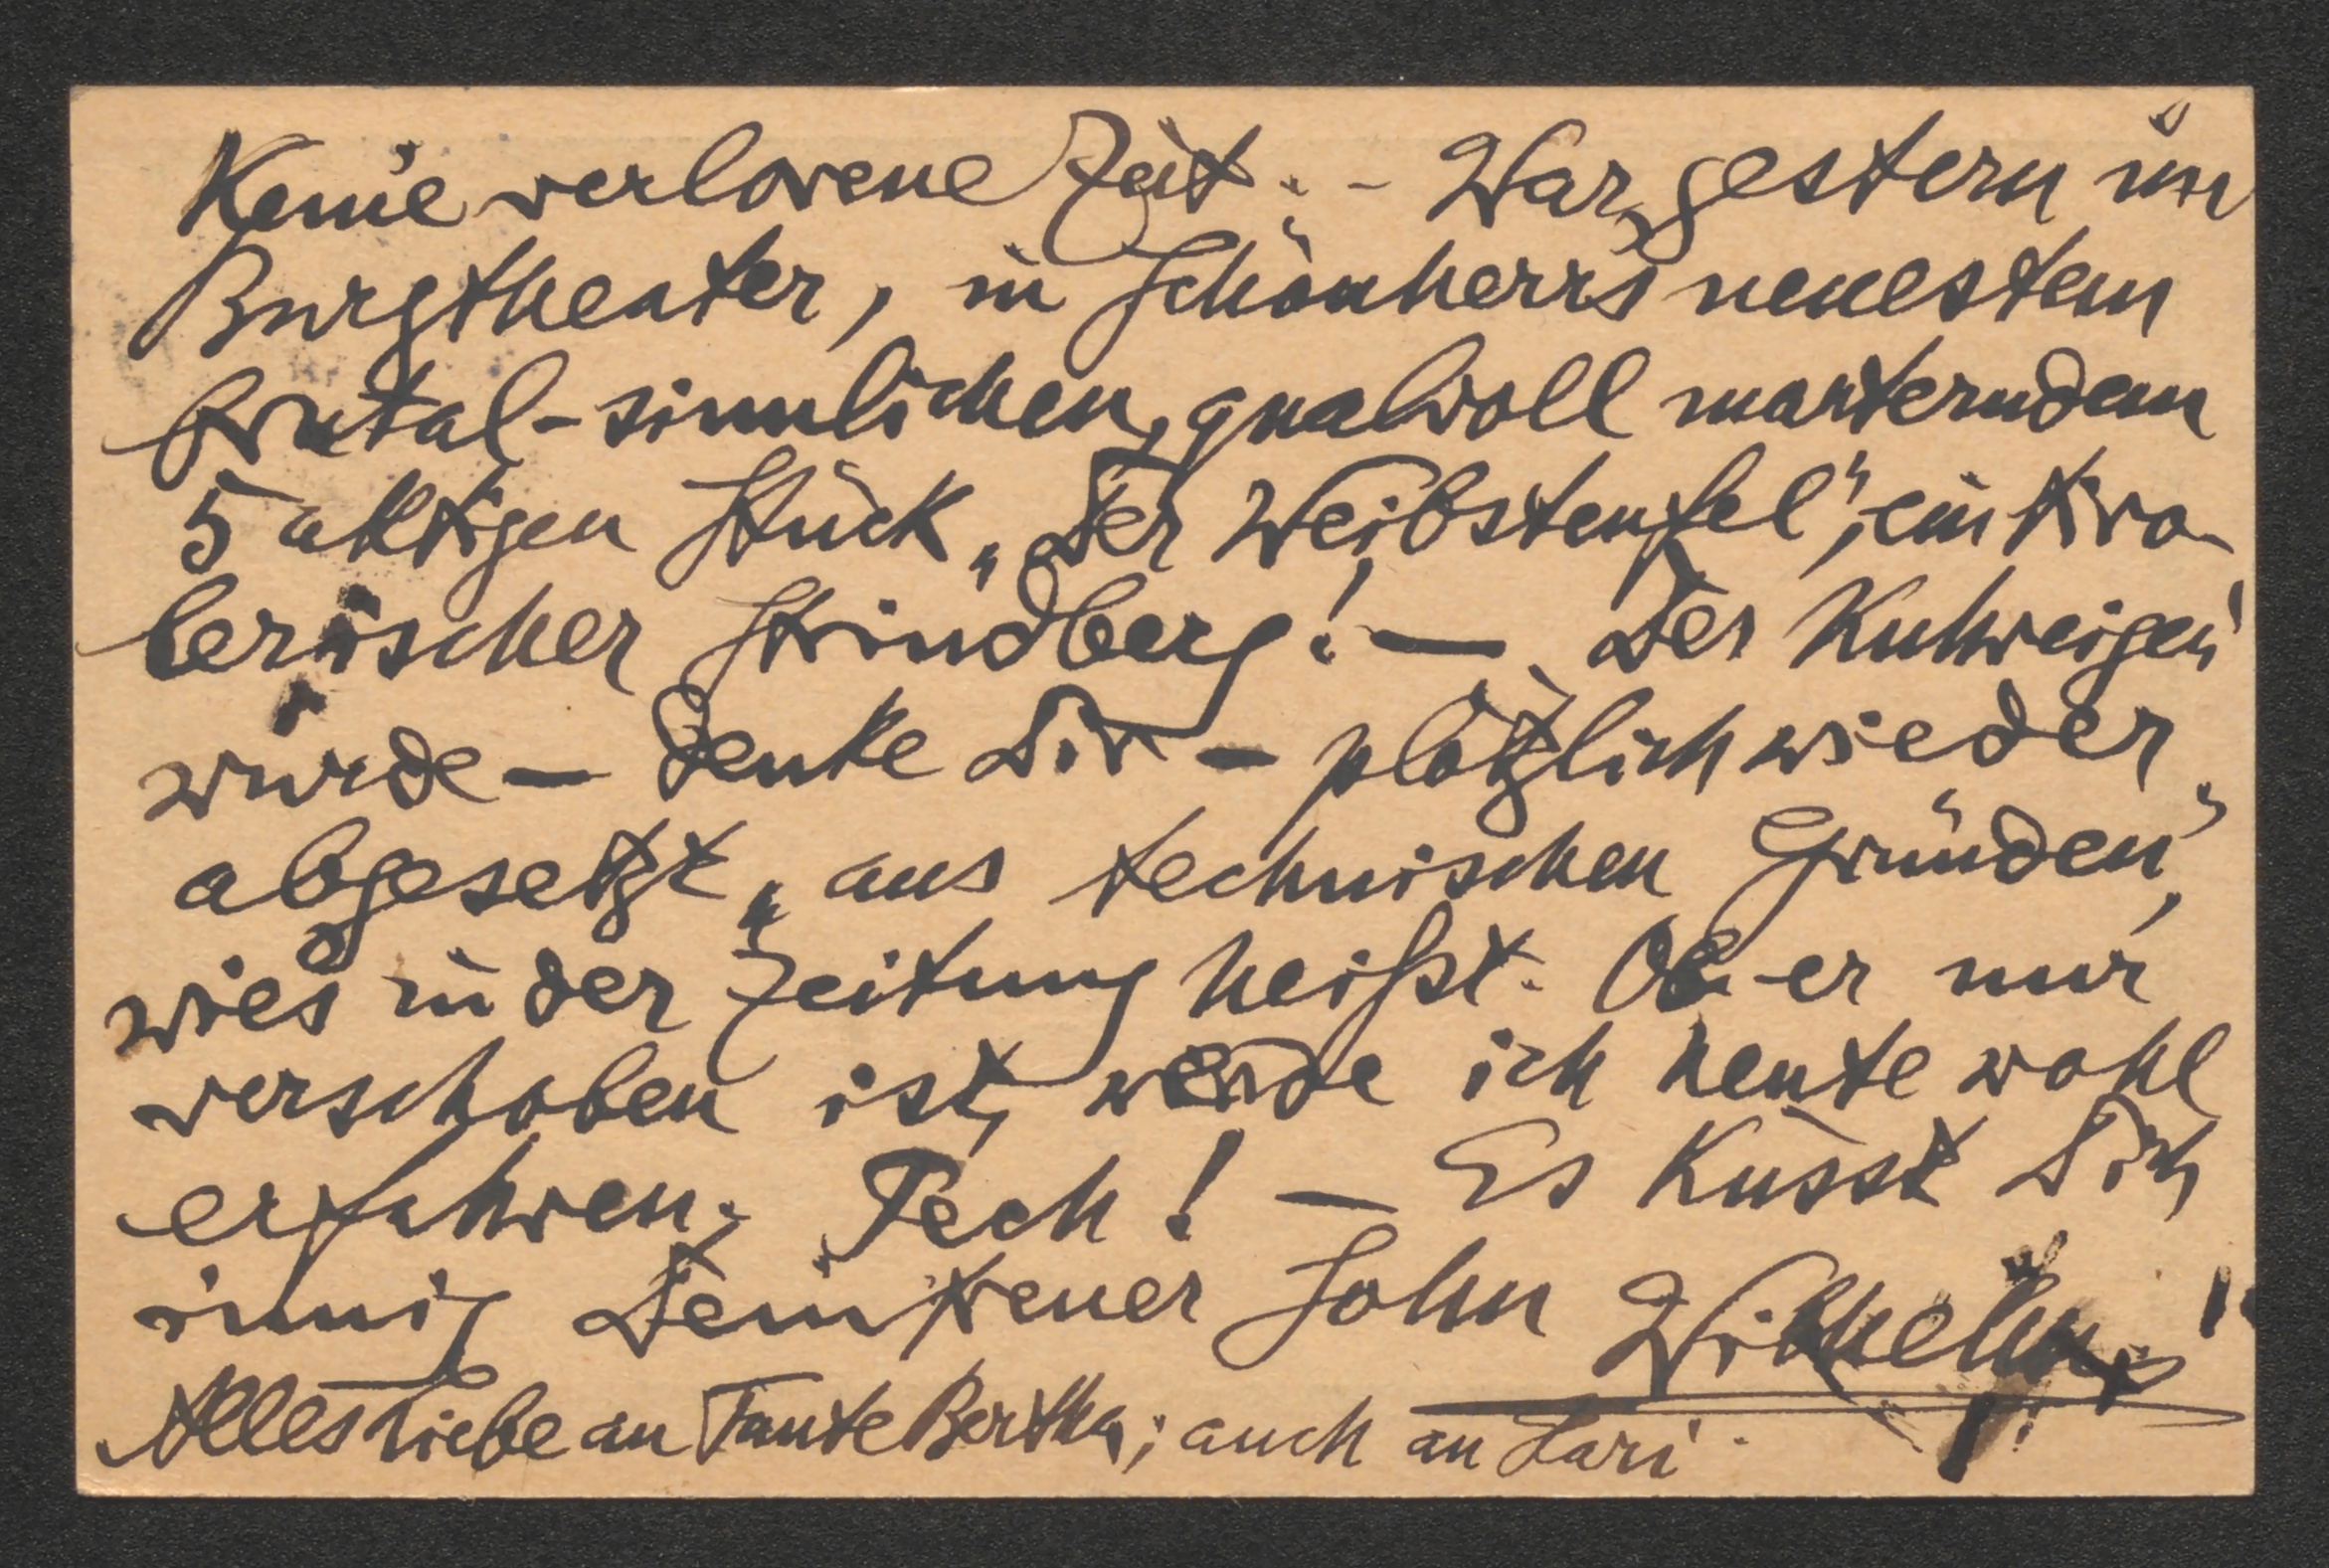 Keine verlorene Zeit. - War gestern im
Burgtheater, in Schönherr's neuestem
brutal-sinnlichen, qualvoll marterndem
5 aktigen Stück „Der Weibsteufel", ein tiro-
lerischer Strindberg! — Der Kuhreigen
wurde — denke Dir — plötzlich wieder
abgesetzt „aus technischen Gründen",
wies in der Zeitung heißst. Ob er nur
verschoben ist, werde ich heute wohl
erfahren. Pech! — Es küsst Dich
innig Dein treuer Sohn Wilhelm!
Alles Liebe an Tante Bertha; auch an Lari.